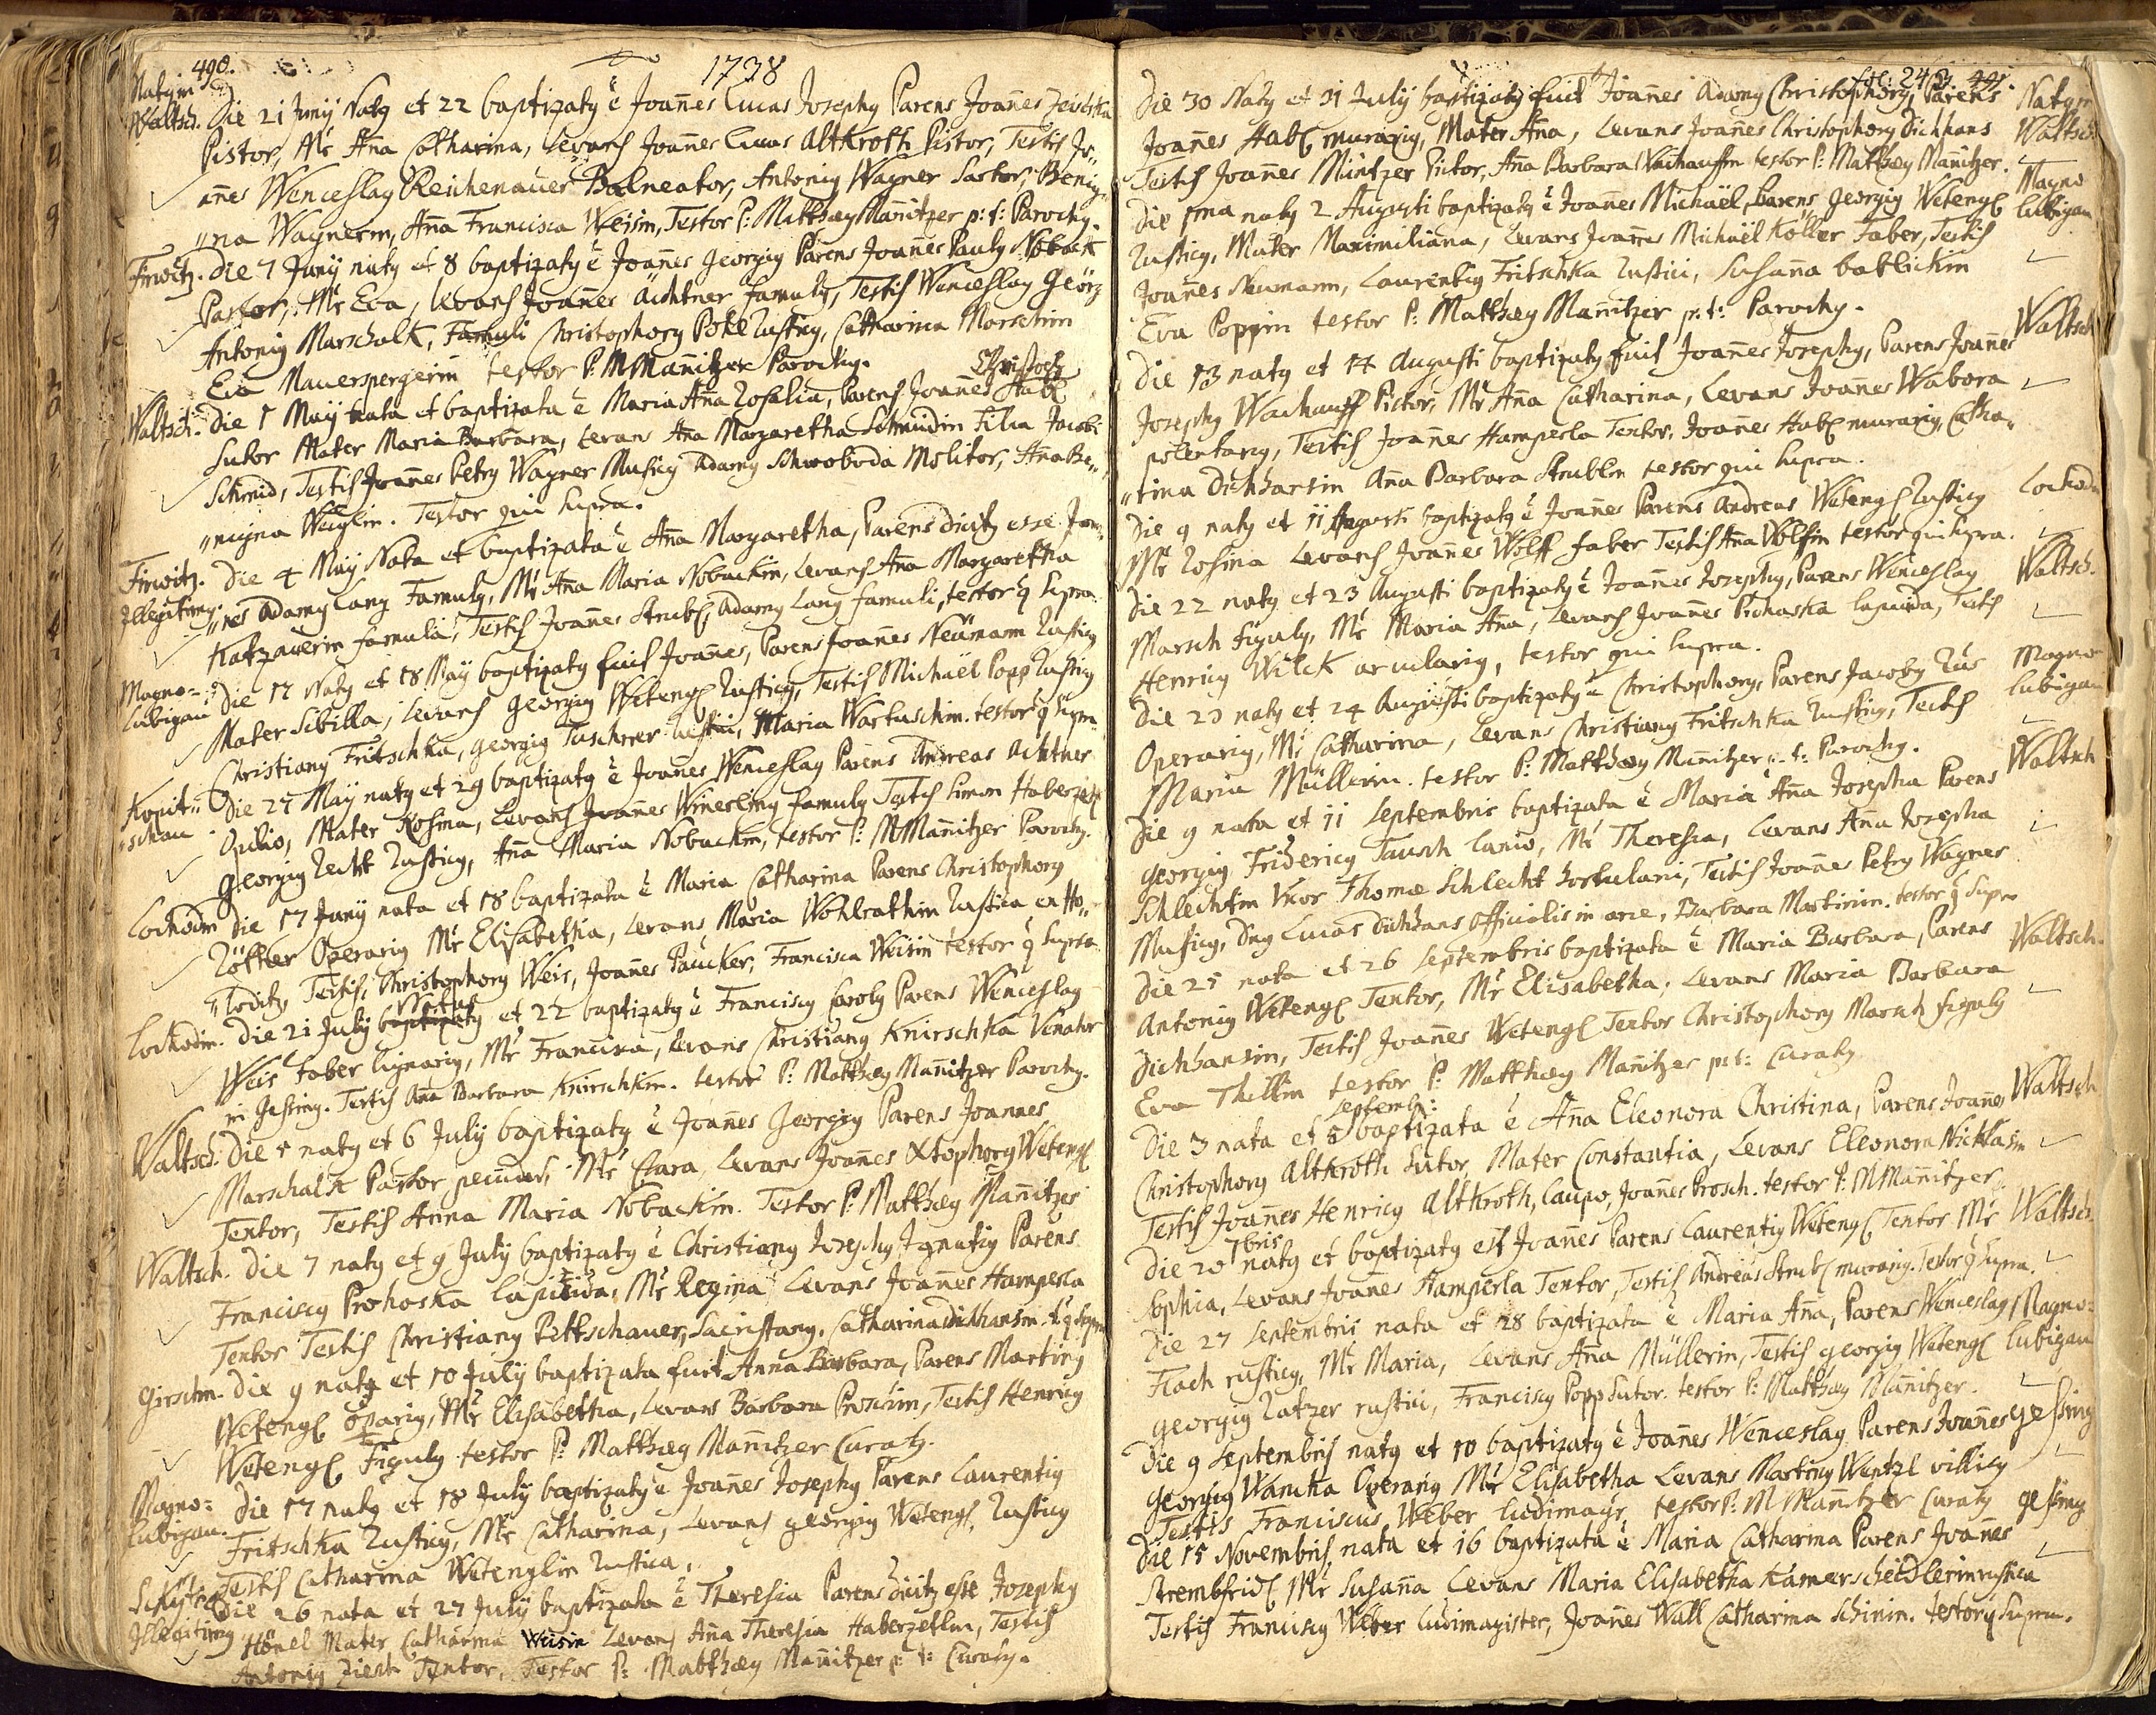 490.
1738
Natg in
Waltsch. Die 21 Junij Natg et 22 baptizatg ē Joañes Lucas Josephg Parens Joañes
Pistor, Mr Aña Catharina, Levans Joañes Lucas Altkroth Pistor, Testis Jo„
añes Wenceslag Reichenauer Balneator, Antonig Wagner Sartor, Benig„
„na Wagnerin, Aña Francisca Weisin, Testor P: Matthæg Mañitzer p: t: Parochg.
Firwitz. Die 7 Junij natg et 8 baptizatg ē Joañes Georgig Parens Joañes Paulg Noback
Pastor, Mr Eva, Levans Joañes Aichtner famulg, Testis Wenceslag Geörg
Antonig Marschalk, Famuli Christophorg Pokl rusticg, Catharina Marschin
Eva Mauerspergerin testor P: M Mañitzer Parochg.
Christoph
Waltsch. Die 1 Maij nata et baptizata ē Maria Aña Rosalia, Parens Joañes Habl
Sutor Mater Maria Barbara, Levans Aña Margaretha Schmidin Filia Jacobi
Schmid, Testis Joañes Petrg Wagner Musicg Adamg Schwoboda Molitor, Aña Be„
„nigna Weiglin. Testor qui supra.
Firwitz. Die 4 Maij Nata et baptizata ē Aña Margaretha, Parens dicitg esse Joa„
Illegitimg. „nes Adamg Lang Famulg, Mr Aña Maria Nobackin, Levans Aña Margaretha
Katzauerin famula, Testis Joañes Strubl, Adamg Lang famuli, testor q supra.
Magno=
Lubigau Die 17 Natg et 18 Maij baptizatg fuit Joañes, Parens Joañes Neümann rusticg
Mater Sibilla, Levans Georgig Wetengl rusticg, Testis Michaël Popp rusticg
Christiang Fritschka, Georgig Taschner rustici, Maria Wartuschin. testor q supra
Kopit„
„schau Die 27 Maij natg et 29 baptizatg ē Joañes Wenceslag Parens Andreas Achtner
Opilio, Mater Rosina, Levans Joañes famulg Testis Simon Haberzetl
Georgig Lecht rusticg, Aña Maria Nobackin, testor P: M Mañitzer Parochg.
Lochodin Die 17 Junij nata et 18 baptizata ē Maria Catharina Parens Christophorg
Röther Operarig Mr Elisabetha, Levans Maria Wohlrathin rustica ex Ho„
„loditz, Testis Christophorg Weis, Joañes Paucker, Francisca Weisin testor q supra
Natus
Lochodin. Die 21 July baptizatg et 22 baptizatg ē Franciscg Carolg Parens Wenceslag
Weis Faber lignarig, Mr Francisca, Levans Christiang Knirschka Venator
in Gesing. Testis Aña Barbara Knirschkin. testor P: Matthæg Mañitzer Parochg.
Waltsch. Die 5 natg et 6 July baptizatg ē Joañes Georgig Parens Joannes
Marschalk Pastor pecudus, Mr Clara, Levans Joañes Xtophorg Wetengl
Textor, Testis Anna Maria Nobackin. Testor P: Matthæg Mañitzer
Waltsch. Die 7 natg et 9 July baptizatg ē Christiang Josephg Ignatig Parens
Franciscg Prohoska Lapicida, Mr Regina, Levans Joañes Hamperla
Textor Testis Christiang Pettschauer, Sacristang, Catharina Dichhansin. t: q supra
Girschn. Die 9 nata et 10 July baptizata fuit Anna Barbara, Parens Marting
Wetengl oparig, Mr Elisabetha, Levans Barbara Proschin, Testis Henricg
Wetengl Figulg testor P: Matthæg Mañitzer Curatg.
Magno=
Lubigau. Die 17 natg et 18 July baptizatg ē Joañes Josephg Parens Laurentig
Fritschka rusticg, Mr Catharina, Levans Georgig Wetengl, rusticg
Testis Catharina Wetenglin rustica.
Die 26 nata et 27 July baptizata ē Theresia Parens dicitg esse Josephg
Illegitimg Hönel Mater Catharina Weisin Levans Aña Theresia Haberzetlin, Testis
Antonig Ziech Textor, Testor P: Matthæg Mañitzer p: t: Curatg.
fol: 243. 491.
Die 30 Natg et 31 July baptizatg fuit Joañes Adamg Christophorg, Parens Natg in
Joañes Habl murarig, Mater Aña, Levans Joañes Christophorg Dichhans Waltsch
Testis Joañes Müntzer Pictor, Aña Barbara Wachauffin testor P: Matthæg Mañitzer.
Die 1ma natg 2 Augusti baptizatg ē Joañes Michaël, Parens Georgig Wetengl Magno
Rusticg, Mater Maximiliana, Levans Joañes Michaël Koller Faber, Testis Lubigau
Joañes Neumann, Laurentig Fritschka rustici, Susaña bablickin
Eva Poppin testor P: Matthæg Mañitzer p: t: Parochg.
Die 13 natg et 14 Augusti baptizatg fuit Joañes Josephg, Parens Joañes Waltsch
Josephg Wachauff Pictor, Mr Aña Catharina, Levans Joañes Wabora
polentarig, Testis Joañes Hamperla Textor, Joañes Habl murarig, Catha„
„rina Dichhansin Aña Barbara Strublin testor qui supra.
Die 9 natg et 11 Augusti baptizatg ē Joañes Parens Andreas Wetengl Rusticg Lochodin
Mr Rosina Levans Joañes Wolff faber Testis Aña Wolfin testor qui supra.
Die 22 natg et 23 Augusti baptizatg ē Joañes Josephg, Parens Wenceslag Waltsch.
Marsch figulg, Mr Maria Aña, Levans Joañes Prohaska Lapicida, Testis
Henricg Wilck arcularig, testor qui supra.
Die 23 natg et 24 Augusti baptizatg ē Christophorg, Parens Jacobg Magno
Operarig, Mr Catharina, Levans Christiang Fritschka rusticg, Testis Lubigau
Maria Müllerin. testor P: Matthæg Mañitzer p: t: Parochg.
Die 9 nata et 11 Septembris baptizata ē Maria Aña Josepha Parens Waltsch
Georgig Fridericg Tausch Lanio, Mr Theresia, Levans Aña Josepha
Schlechtin Uxor Thomæ Schlecht hortulani, Testis Joañes Petrg Wagner
Musicg, Dng Lucas Dichhans officialis in arce, Barbara Martinin. testor q supra
Die 25 nata et 26 Septembris baptizata ē Maria Barbara, Parens Waltsch.
Antonig Wetengl Textor, Mr Elisabetha, Levans Maria Barbara
Dichhansin, Testis Joañes Wetengl Textor Christophorg Marsch figulg
Eva Thillin testor P: Matthæg Mañitzer p: t: Curatg
Septembr:
Die 3 nata et 5 baptizata ē Aña Eleonora Christina, Parens Joañes Waltsch
Christophorg Altkroth Sutor, Mater Constantia, Levans Eleonora Nicklasin
Testis Joañes Henricg Altkroth, Caupo, Joañes Prosch. testor P: M Mañitzer.
7bris
Die 20 natg et baptizatg est Joañes Parens Laurentig Wetengl Textor Mr Waltsch.
Sophia, Levans Joañes Hamperla Textor, Testis Andreas Strubl murarig. Testor q supra.
Die 27 Septembris nata et 28 baptizata ē Maria Aña, Parens Wenceslag Magno=
Flach rusticg, Mr Maria, Levans Aña Müllerin, Testis Georgig Wetengl Lubigau
Georgig Latzer rustici, Franciscg Popp Sutor. testor P: Matthæg Mañitzer.
Die 9 Septembris natg et 10 baptizatg ē Joañes Wenceslag Parens Joañes Gessing
Georgig Wancka Operarig Mr Elisabetha Levans Marting Wentzl villicg
Testis Franciscus Weber Ludimagr, testor P: M Mañitzer Curatg
Die 15 Novembris nata et 16 baptizata ē Maria Catharina Parens Joañes Gessing
Strembfridl Mr Susaña Levans Maria Elisabetha Kamerscheidlerin rustica
Testis Franciscg Weber Ludimagister, Joañes Wall Catharina Schinin. testor q supra.